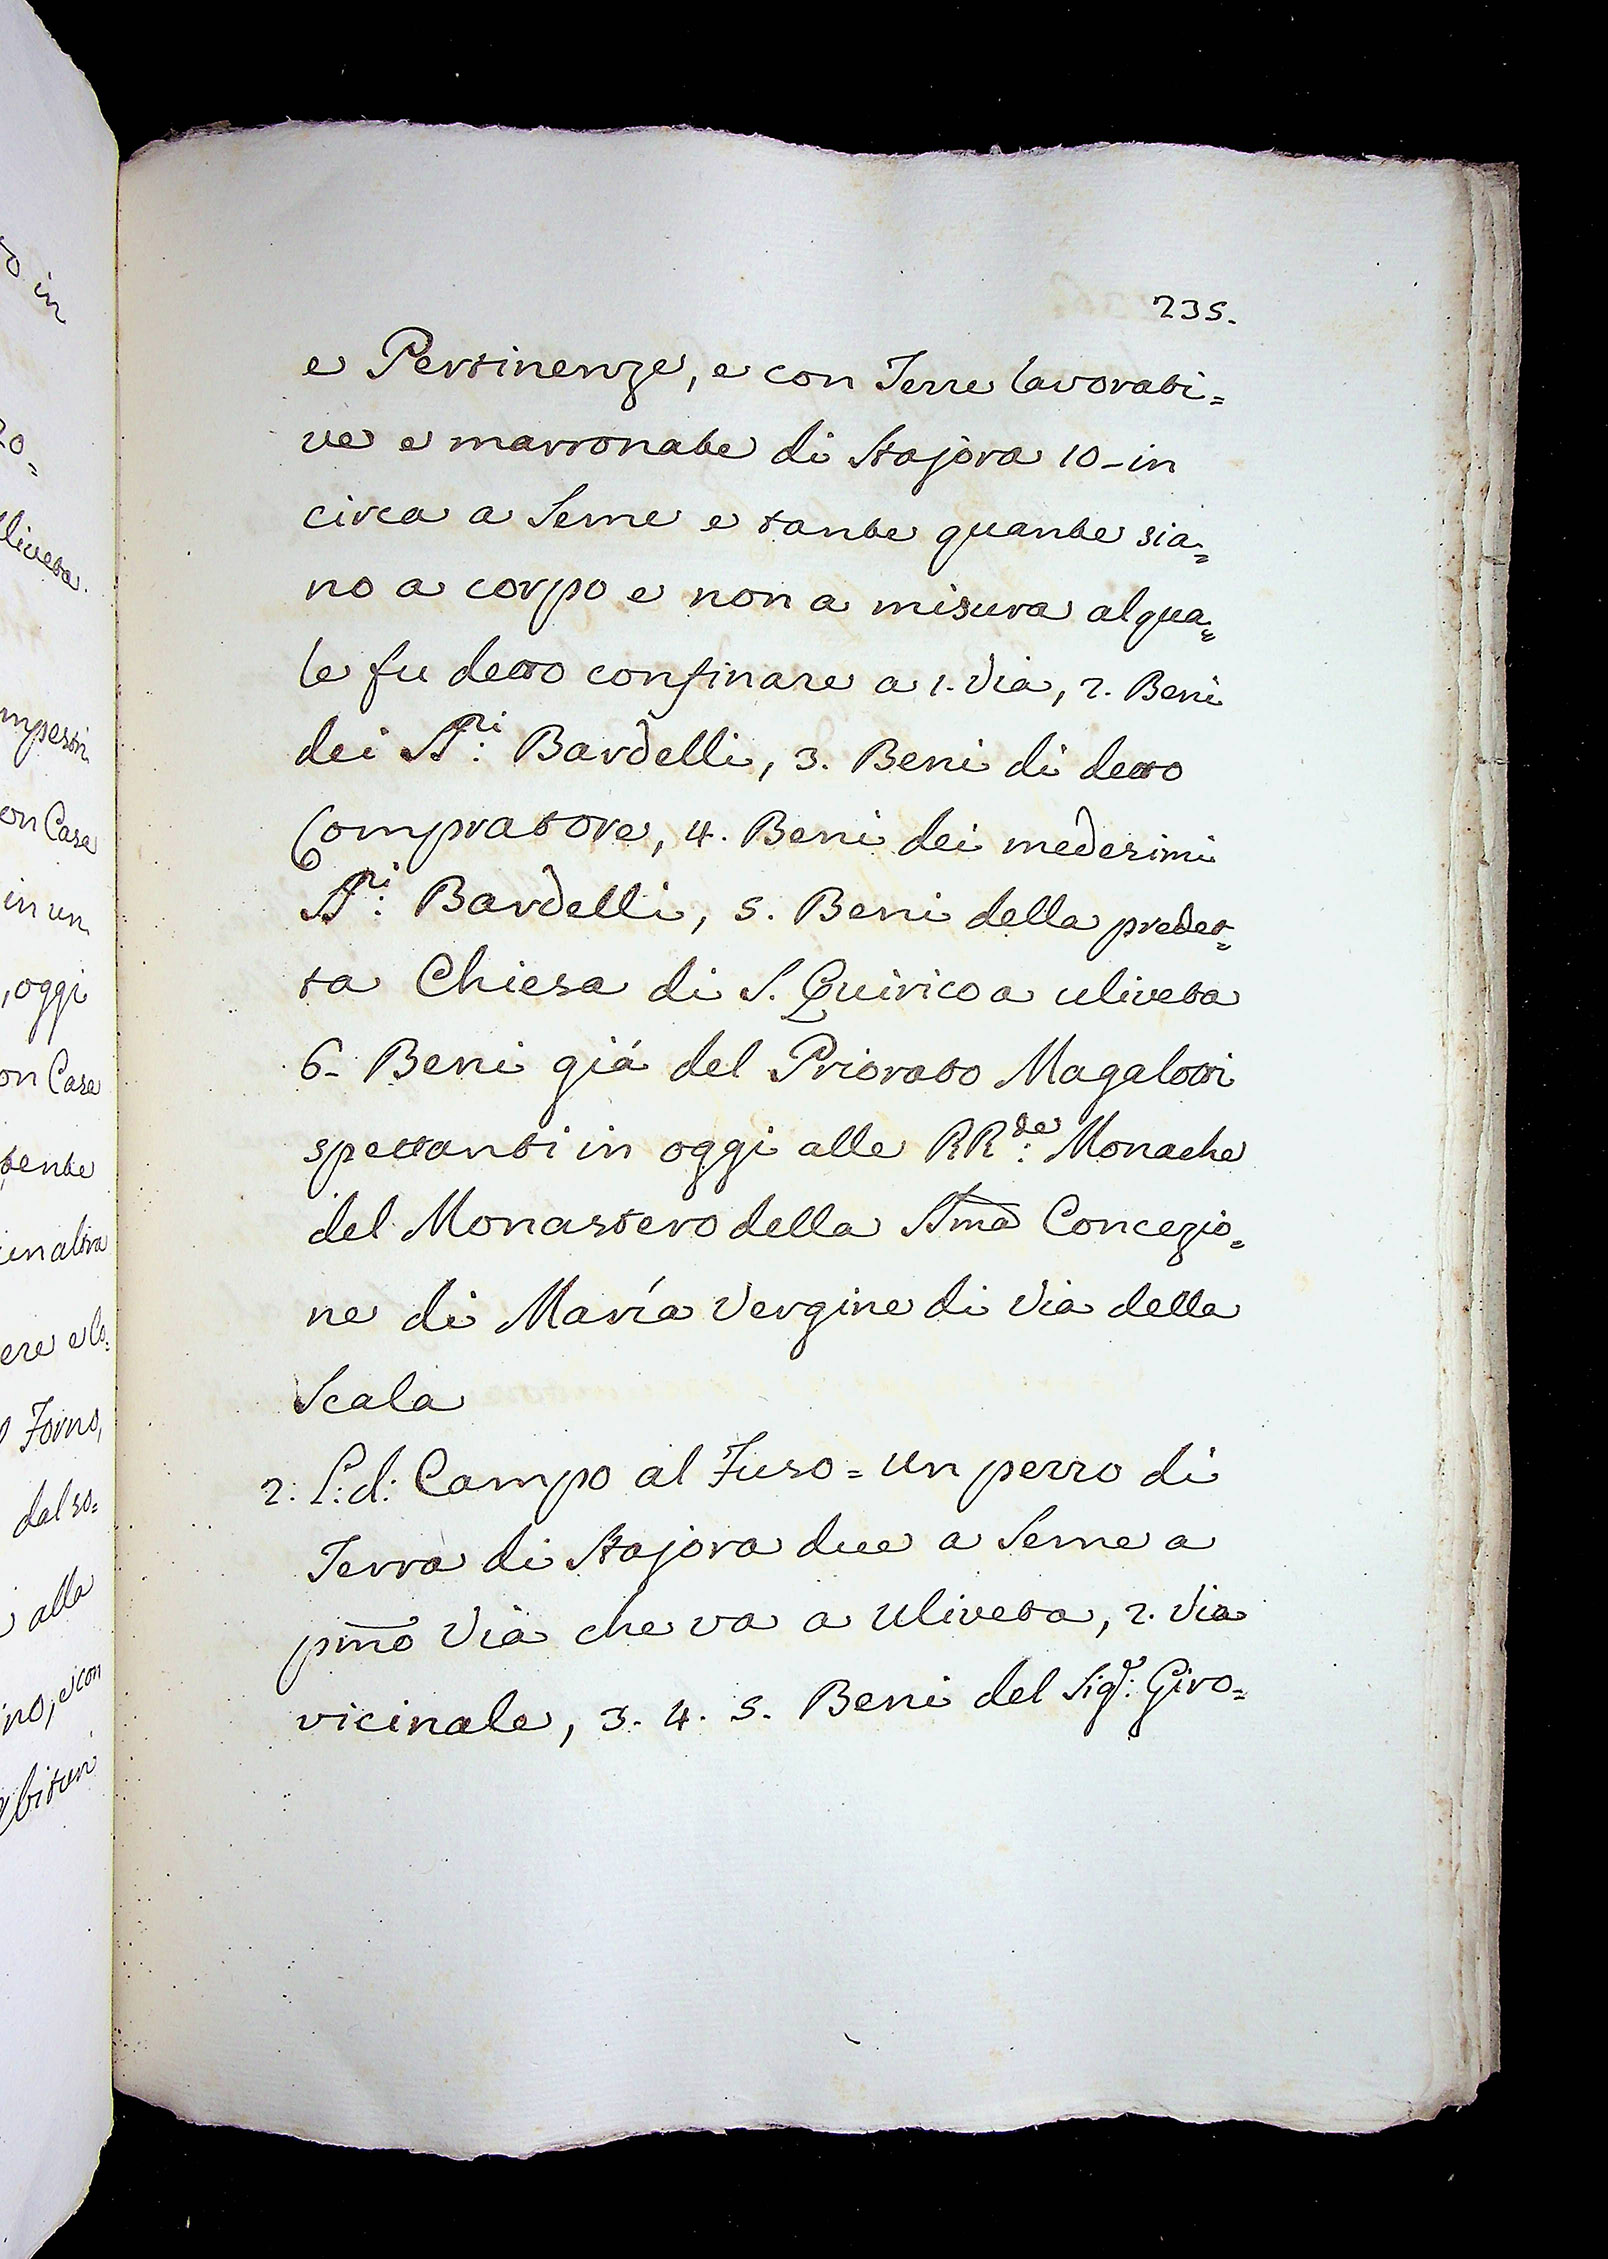 235.
e Pertinenze, e con Terre lavorati=
ve e marronate di Stajora 10_ in
circa a Seme e tante quante sia=
no a corpo e non a misura al qua=
le fu detto confinare a 1. Via, 2. Beni
dei SS.ri: Bardelli, 3. Beni di detto
Compratore, 4. Beni dei medesimi
SS.ri: Bardelli, 5. Beni della predet=
ta Chiesa di S. Quirico a uliveta
6_ Beni giá del Priorato Magalotti
spettanti in oggi alle RR.de: Monache
del Monastero della SSma Concezio=
ne di María Vergine di Via della
Scala
2. L: d: Campo al Fuso = un pezzo di
Terra di Stajora due a Seme a
pmo Via che va a Uliveta, 2. Via
vicinale, 3. 4. 5. Beni del Sig.e: Giro=
o in
zo=
liveta.
on Casa
in un
, oggi
on Casa
tente
un altra
ere e lo=
l Forno,
dal so=
alla
no, e con